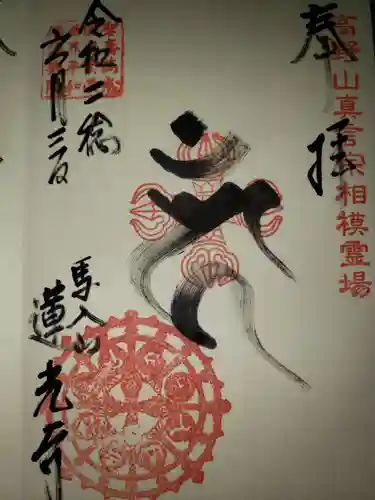 高野山真言宗相模霊場
奉拝
馬入山
蓮光寺
令和二歳
六月三日